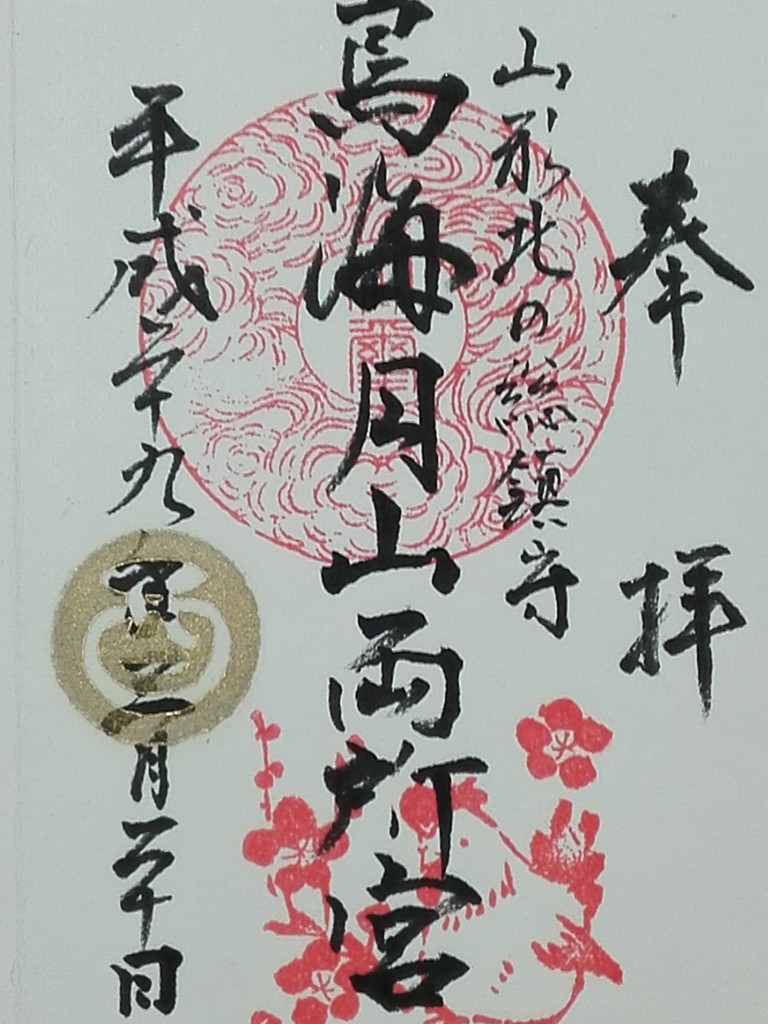 奉拝
山形北の総鎮守
鳥海月山両所宮
平成二十九年二月二十日